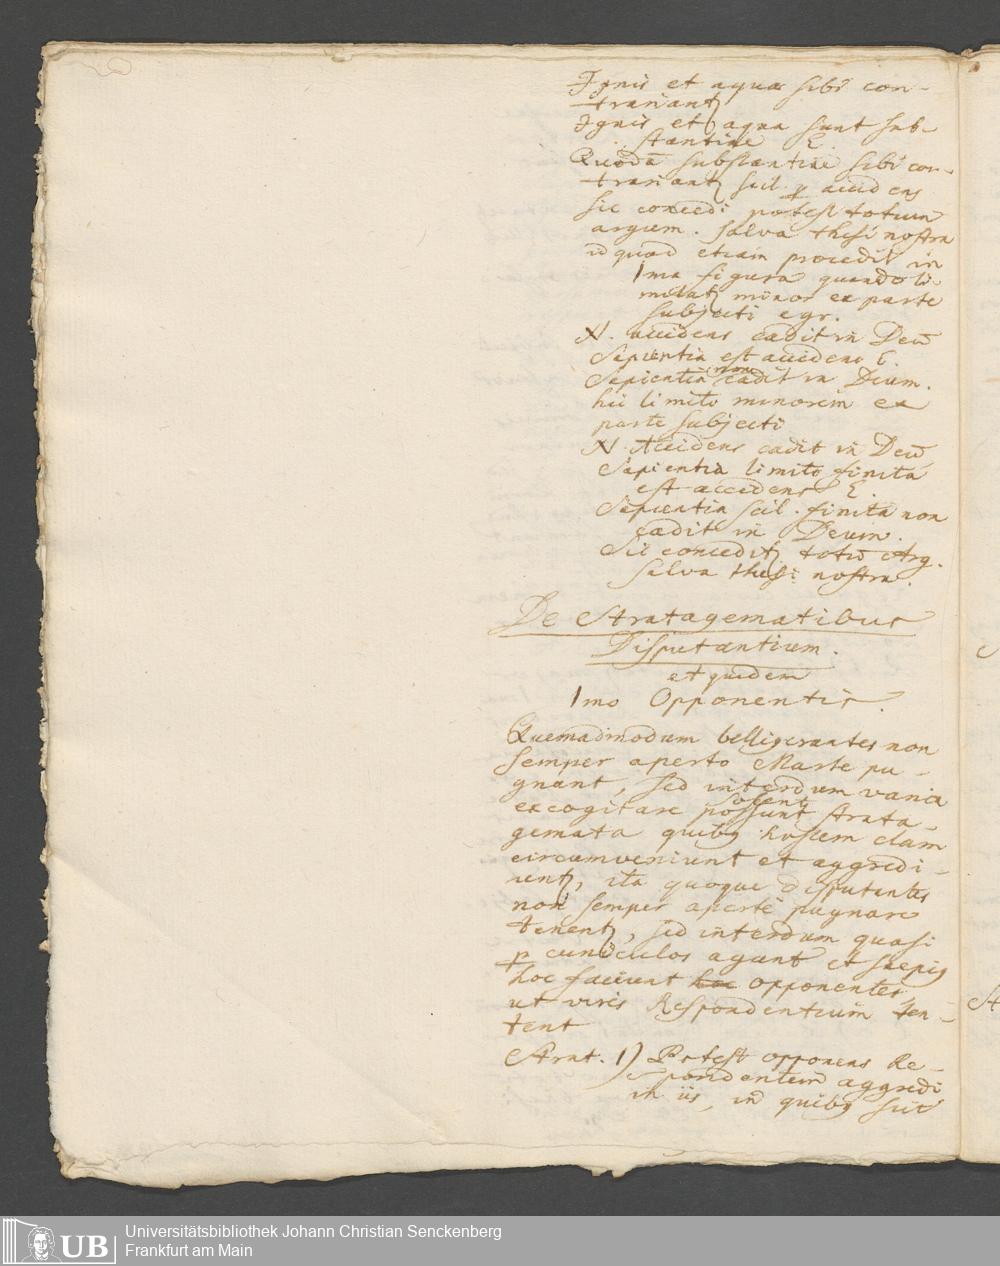 Ignis et aqua sibi con-
trariantʒ
Ignis et aqua sunt sub-
stantiae E.
Quaedā substantiae sibi con-
trariantʒ scil. ꝑ accidens
sic concedi potest totum
argum. salva thesi nostra
id quod etiam procedit in
1ma figura quando li-
mitatʒ minor ex parte
subjecti e gr.
N. accidens cadit in Deū
Sapientia est accidens E.
Sapientia non cadit in Deum.
hic limito minorem ex
parte subjecti
N. Accidens cadit in Deū
Sapientia limito finita
est accidens E.
Sapientia scil. finita non
cadit in Deum.
Sic conceditʒ totū Arg.
salva thesi nostra.
De Stratagematibus
Disputantium.
et quidem
1mo Opponentis.
Quemadmodum belligerantes non
semper aperto Marte pu-
gnant, sed interdum varia
solent
excogitare possunt strata-
gemata quibꝫ hostem clam
circumveniunt et aggredi-
untʒ, ita quoque disputantes
non semper aperte pugnare
tenentʒ, sed interdum quasi
ꝑ cuniculos agunt et saepiꝫ
hoc faciunt hoc opponentes
ut vires Respondentium ten-
tent
Strat. 1) Potest opponens Re-
spondentem aggredi
in iis, in quibꝫ sūt
Universitätsbibliothek Johann Christian Senckenberg
UB
Frankfurt am Main